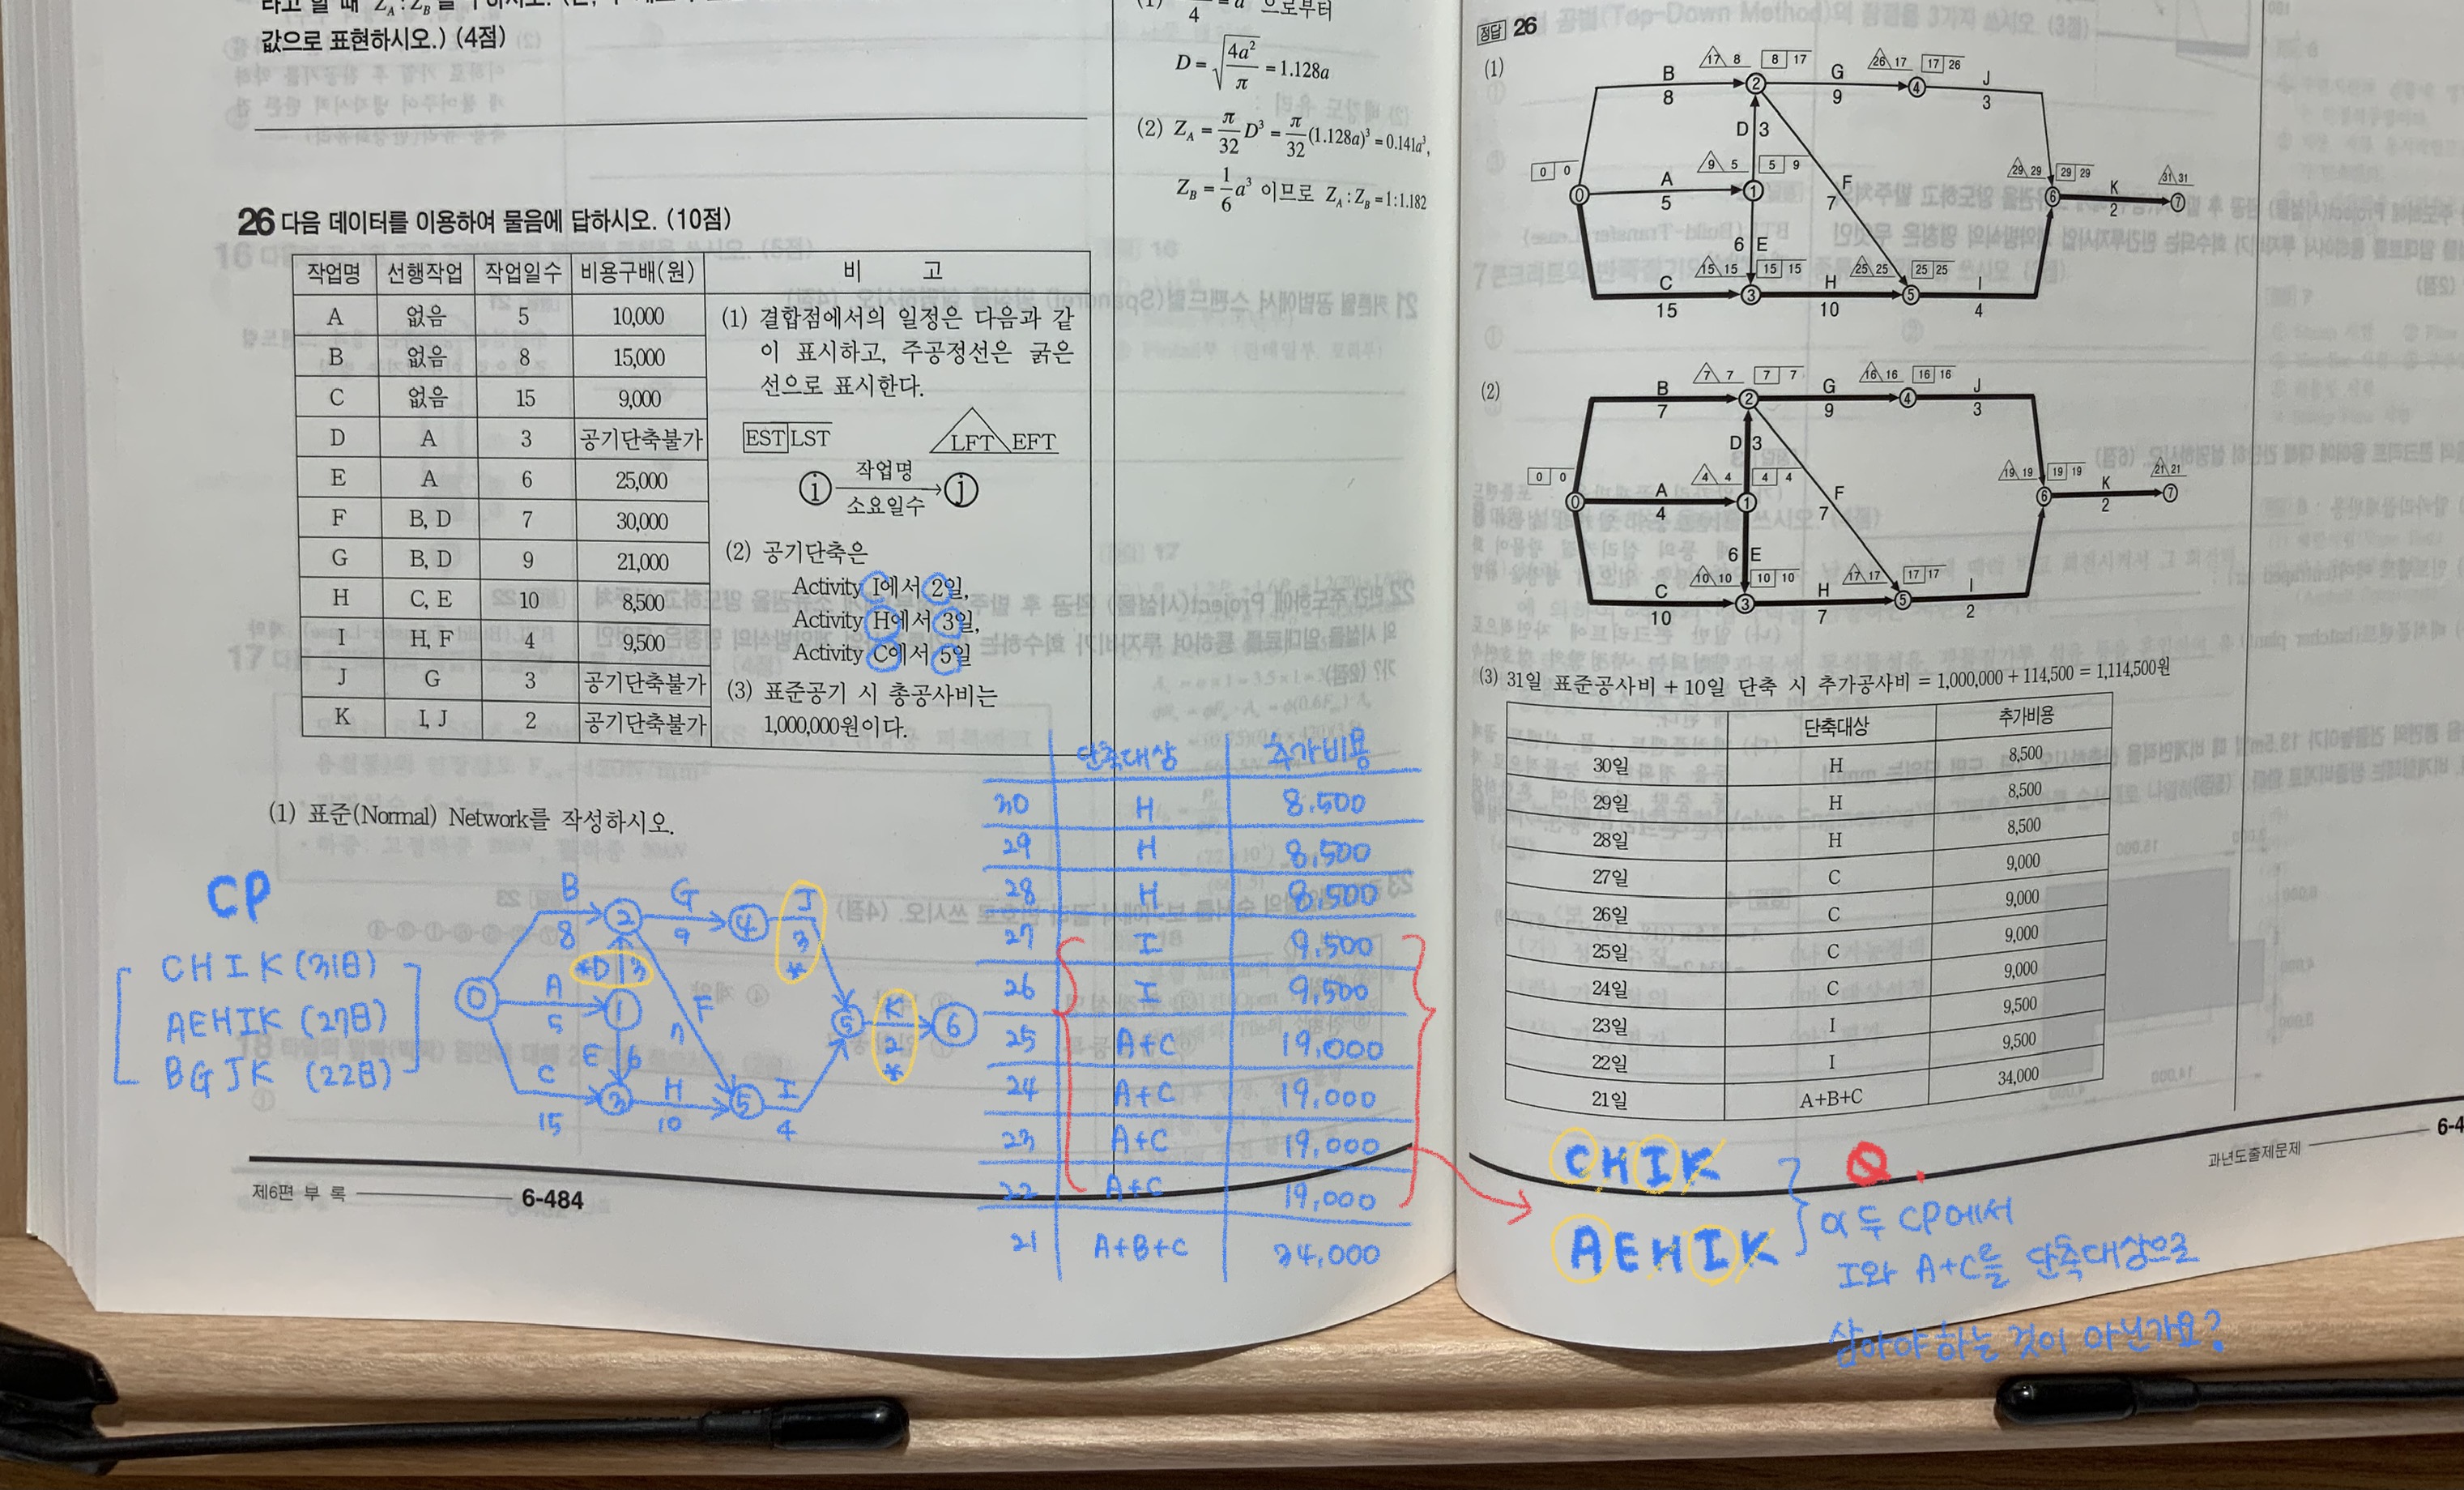 값으로 표현하시오.) (4점)
26 다음 데이터를 이용하여 물음에 답하시오. (10점)
작업명 선행작업 작업일수 비용구배(원) 비 고
A 없음 5 10,000
B 없음 8 15,000
C 없음 15 9,000
D A 3 공기단축불가
E A 6 25,000
F B, D 7 30,000
G B, D 9 21,000
H C, E 10 8,500
I H, F 4 9,500
J G 3 공기단축불가
K I, J 2 공기단축불가
(1) 결합점에서의 일정은 다음과 같
이 표시하고, 주공정선은 굵은
선으로 표시한다.
EST LST LFT EFT
i 작업명 j
소요일수
(2) 공기단축은
Activity I에서 2일,
Activity H에서 3일,
Activity C에서 5일
(3) 표준공기 시 총공사비는
1,000,000원이다.
(1) 표준(Normal) Network를 작성하시오.
CP
CHIK (31日)
AEHIK (27日)
BGJK (22日)
B G J
0 8 2 9 4 3 *
*D 3
A 5 1 F 7 5 K 2 * 6
E 6
C 15 3 H 10 5 I 4
단축대상 추가비용
30 H 8.500
29 H 8.500
28 H 8.500
27 I 9.500
26 I 9.500
25 A+C 19.000
24 A+C 19.000
23 A+C 19.000
22 A+C 19.000
21 A+B+C 34.000
제6편 부 록 6-484
4 = a 으로부터
D = √4a²/π = 1.128a
(2) Z_A = π/32 D³ = π/32 (1.128a)³ = 0.141a³,
Z_B = 1/6 a³ 이므로 Z_A : Z_B = 1:1.182
정답 26
(1)
B 8 17 8 8 17 2 G 9 26 17 17 26 4 J 3
D 3
0 0 0 A 5 9 5 5 9 1 F 7 29 29 29 29 6 K 2 31 31 7
6 E
C 15 15 15 15 15 3 H 10 25 25 25 25 5 I 4
(2)
B 7 7 7 7 7 2 G 9 16 16 16 16 4 J 3
D 3
0 0 0 A 4 4 4 4 4 1 F 7 19 19 19 19 6 K 2 21 21 7
6 E
C 10 10 10 10 10 3 H 7 17 17 17 17 5 I 2
(3) 31일 표준공사비 + 10일 단축 시 추가공사비 = 1,000,000 + 114,500 = 1,114,500원
단축대상 추가비용
30일 H 8,500
29일 H 8,500
28일 H 8,500
27일 C 9,000
26일 C 9,000
25일 C 9,000
24일 C 9,000
23일 I 9,500
22일 I 9,500
21일 A+B+C 34,000
과년도출제문제
CHIK
AEHIK
Q.
이 두 CP에서
I와 A+C를 단축대상으로
삼아야 하는 것이 아닌가요?